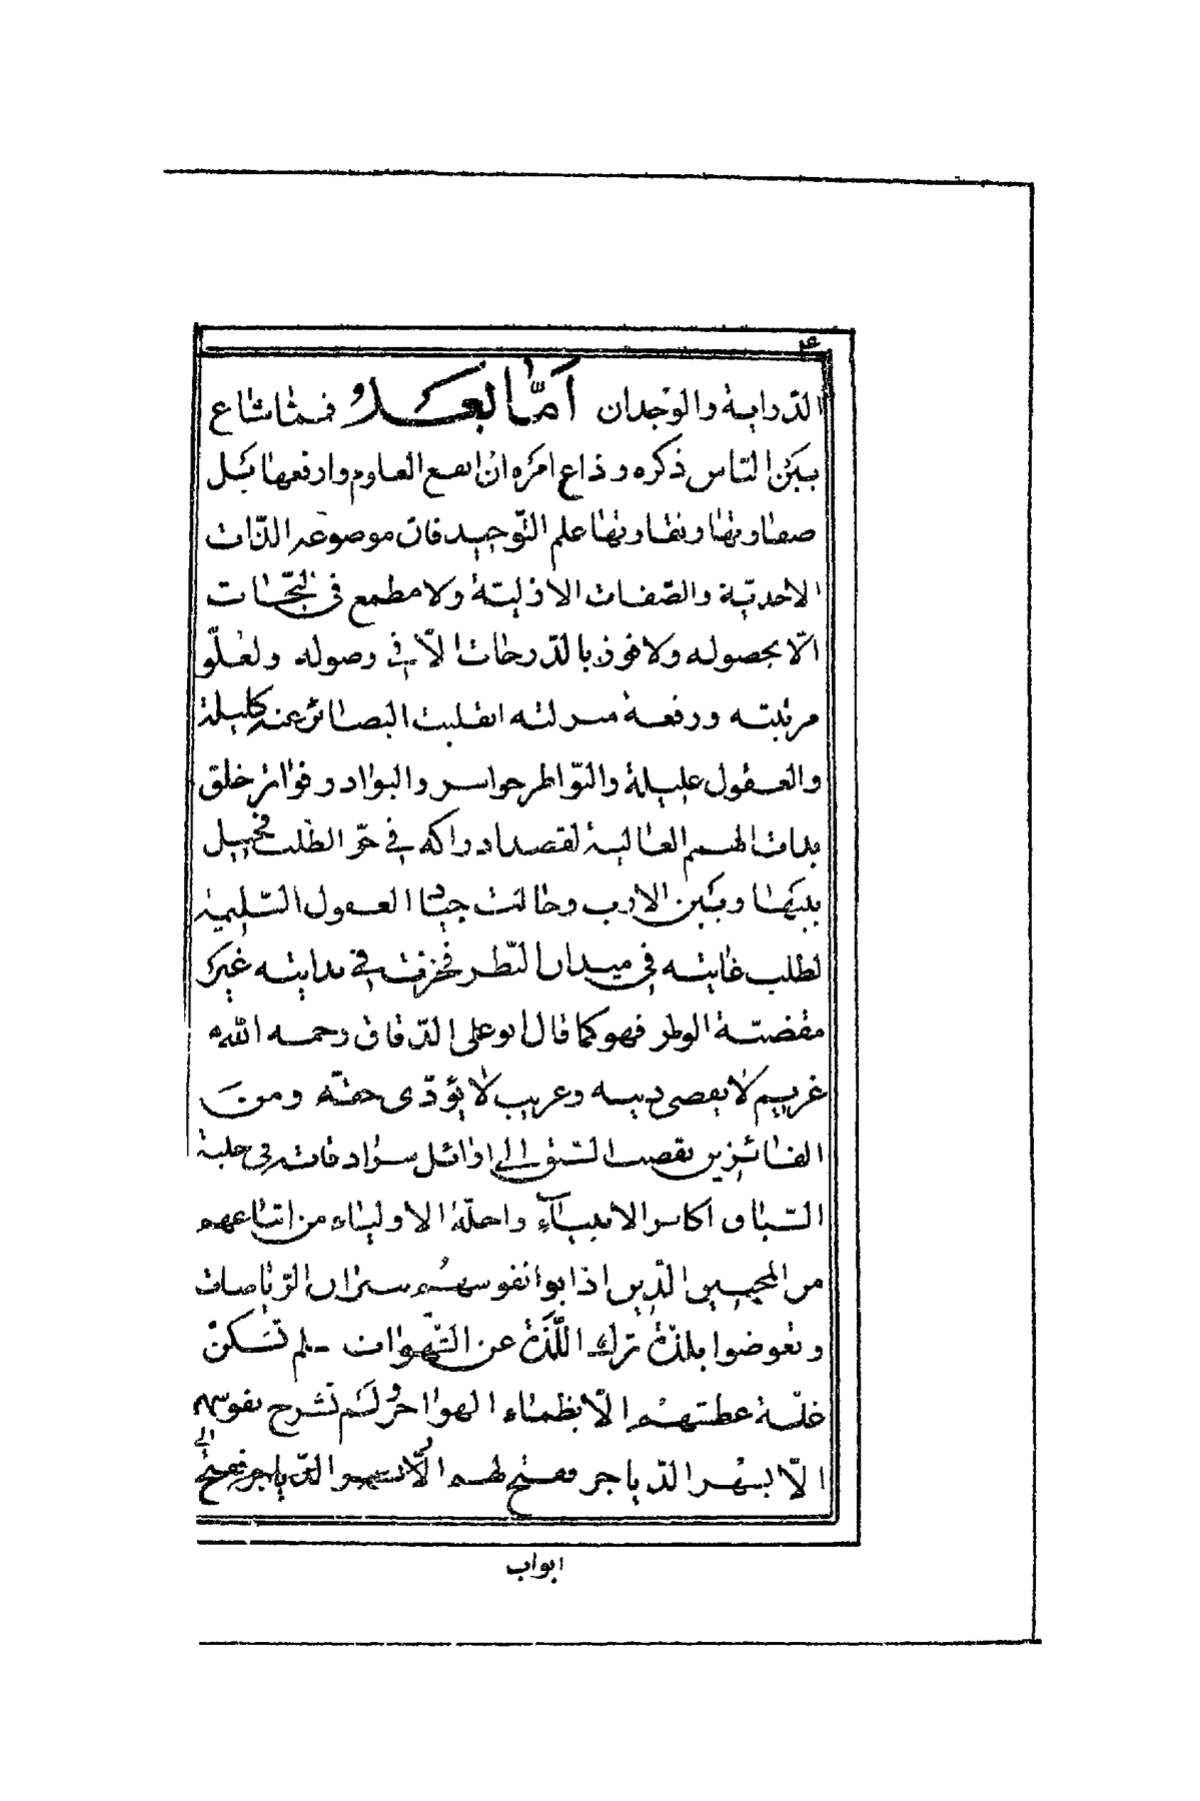 ٤
الدّراية والوجدان امّا بعد فممّا شاع
بين النّاس ذكره وذاع امره ان انفع العلوم وارفعها بكل
صفاوتها ونقاوتها علم التّوحيد فان موضوعه الذّات
الاحديّة والصّفات الازليّة ولا مطمع فى النّجات
الّا بحصوله ولا فوز بالدّرجات الّا فى وصوله ولعلّو
مرتبته ورفعة منزلته انقلبت البصائر عنه كليلة
والعقول عليلة والنّواظر حواسر والبوادر فواتر خلق
الهمم العالية لقصد ادراكه فى حرّ الطّلب فحيل
بينها وبين الادب وجالت جياد العقول السّليمة
لطلب غايته فى ميدان النّظر فى بدايته غير
مقضيّة الوطر فهو كما قال ابو على الدّقاق رحمه الله
غريم لا يقضى دينه وغريب لا يؤدّى حقّه ومن
الفائزين بقصب السّبق الى اوائل فاته فى حلبة
السّباق اكابر الانبياء واجلّة الاولياء من اتباعهم
من المحبيين الّذين اذابوا نفوسهم بنيران الرّياضات
وتعوضوا بلذّة ترك اللّذّة عن الشّهوات لم تسكن
غلّة عطشهم الّا بظماء الهواجر ولم تشرح نفوسهم
الّا بسهر الدّياجر ففتح لهم الّا بسهر الدّياجر ففتح لهم
ابواب